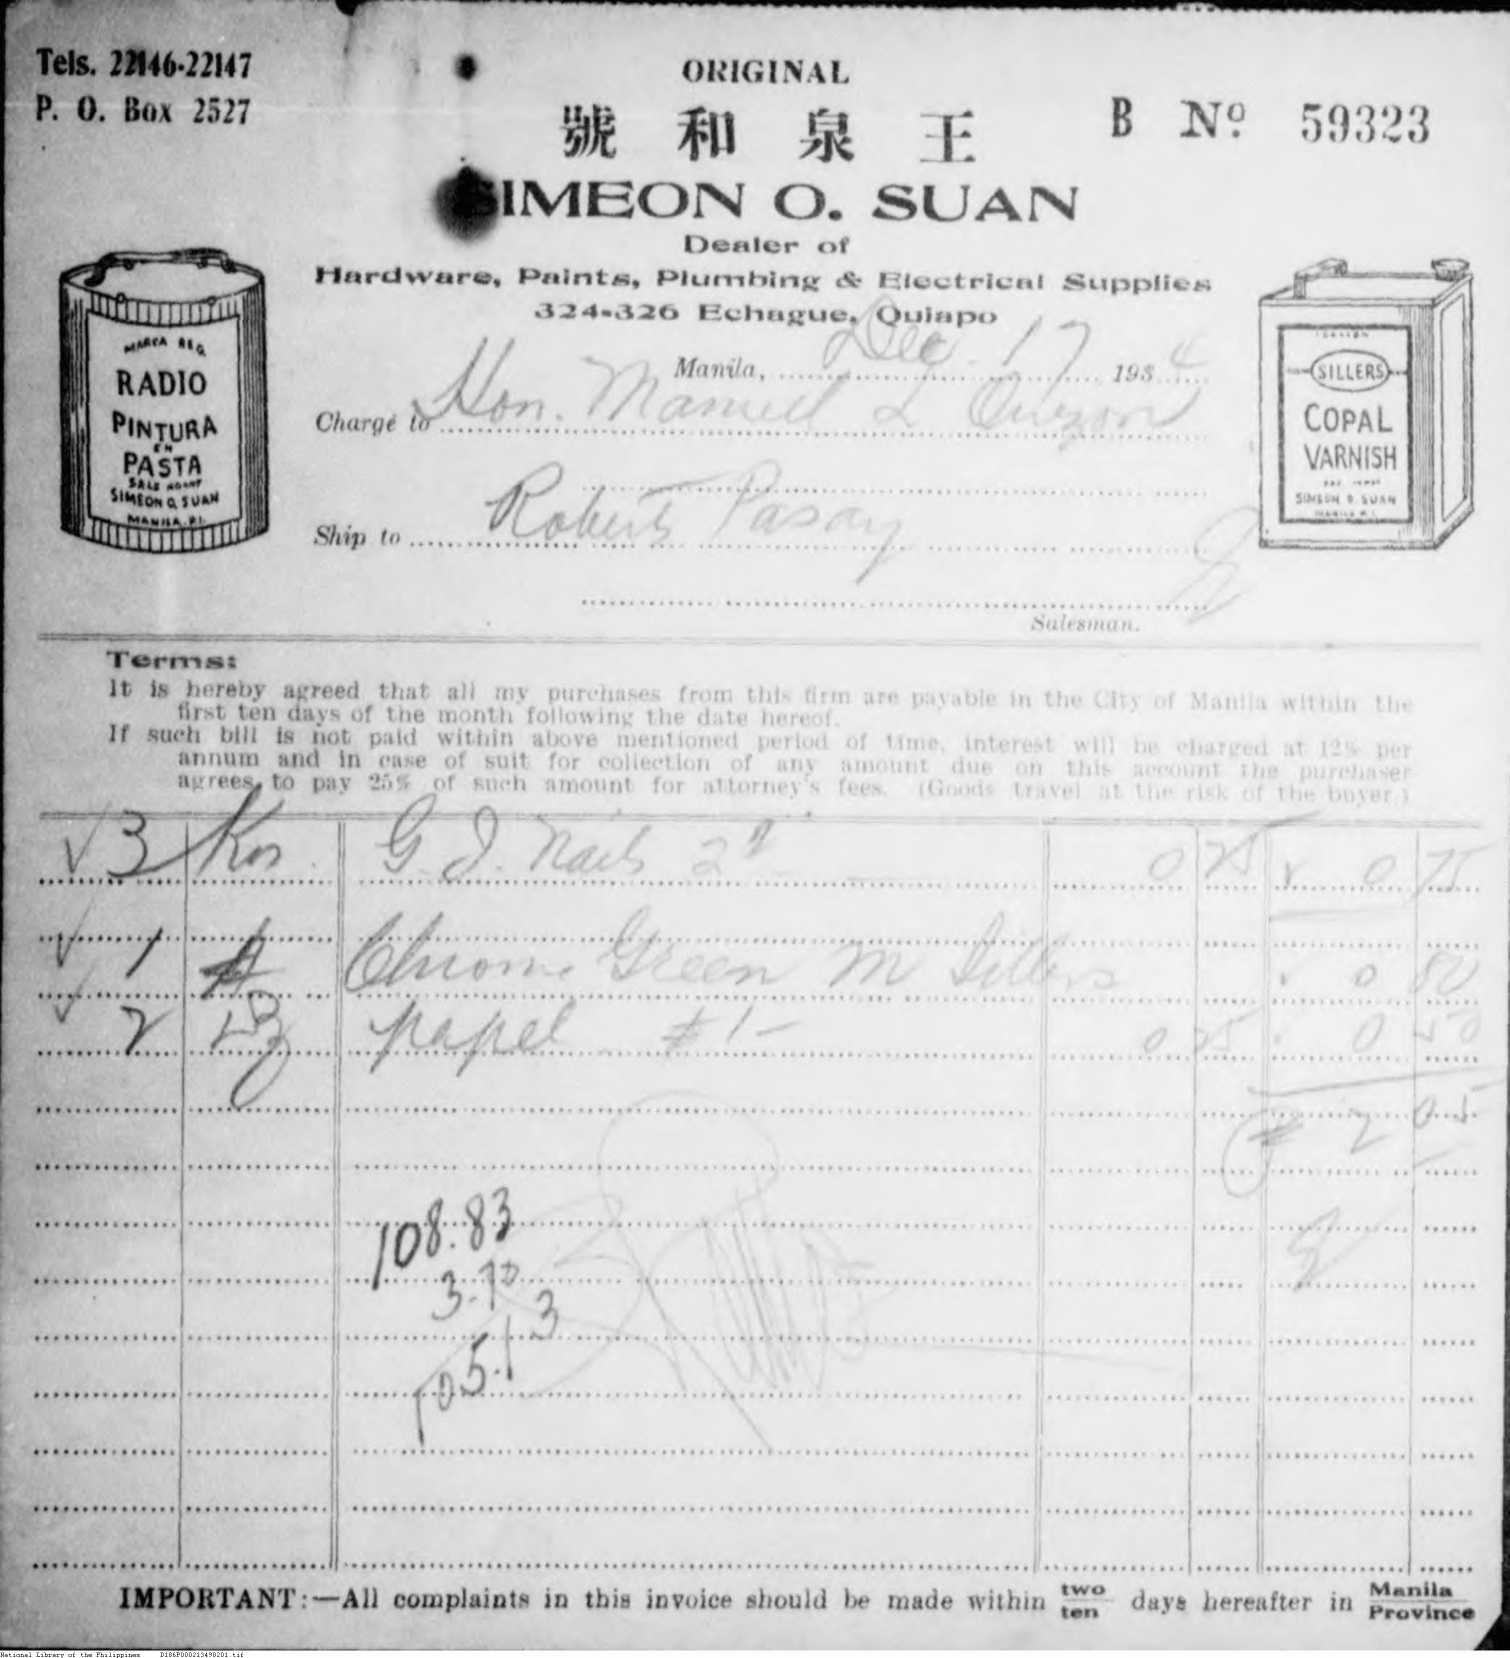 Tels. 22146-22147
P. O. Box 2527
ORIGINAL
號 和 泉 王
B Nº. 59323
SIMEON O. SUAN
Dealer of
Hardware, Paints, Plumbing & Electrical Supplies
324-326 Echague, Quiapo
Manila, Dec. 17 1934
Charge to Hon. Manuel L Quezon
Ship to Roberts Pasay
Salesman.
MARCA REG.
RADIO
PINTURA
EN
PASTA
SALE AGENT
SIMEON O. SUAN
MANILA, P.I.
SILLERS
COPAL
VARNISH
SIMEON O. SUAN
MANILA P.I.
Terms:
It is hereby agreed that all my purchases from this firm are payable in the City of Manila within the
first ten days of the month following the date hereof.
If such bill is not paid within above mentioned period of time, interest will be charged at 12% per
annum and in case of suit for collection of any amount due on this account the purchaser
agrees to pay 25% of such amount for attorney's fees. (Goods travel at the risk of the buyer.)
3 Kos. G. I. Nails 2" 0 25 0 75
1 Chrome Green M Sillers 0 80
2 Dz papel #1- 0 25 0 50
2 05
108.83
3.70
105.13
IMPORTANT:—All complaints in this invoice should be made within two/ten days hereafter in Manila/Province
National Library of the Philippines D186P000213498201.tif